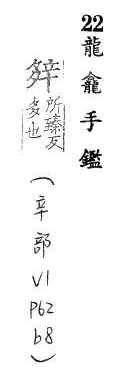 22龍龕手鑑
所臻反
多也
(辛部 V1 P62 b8)